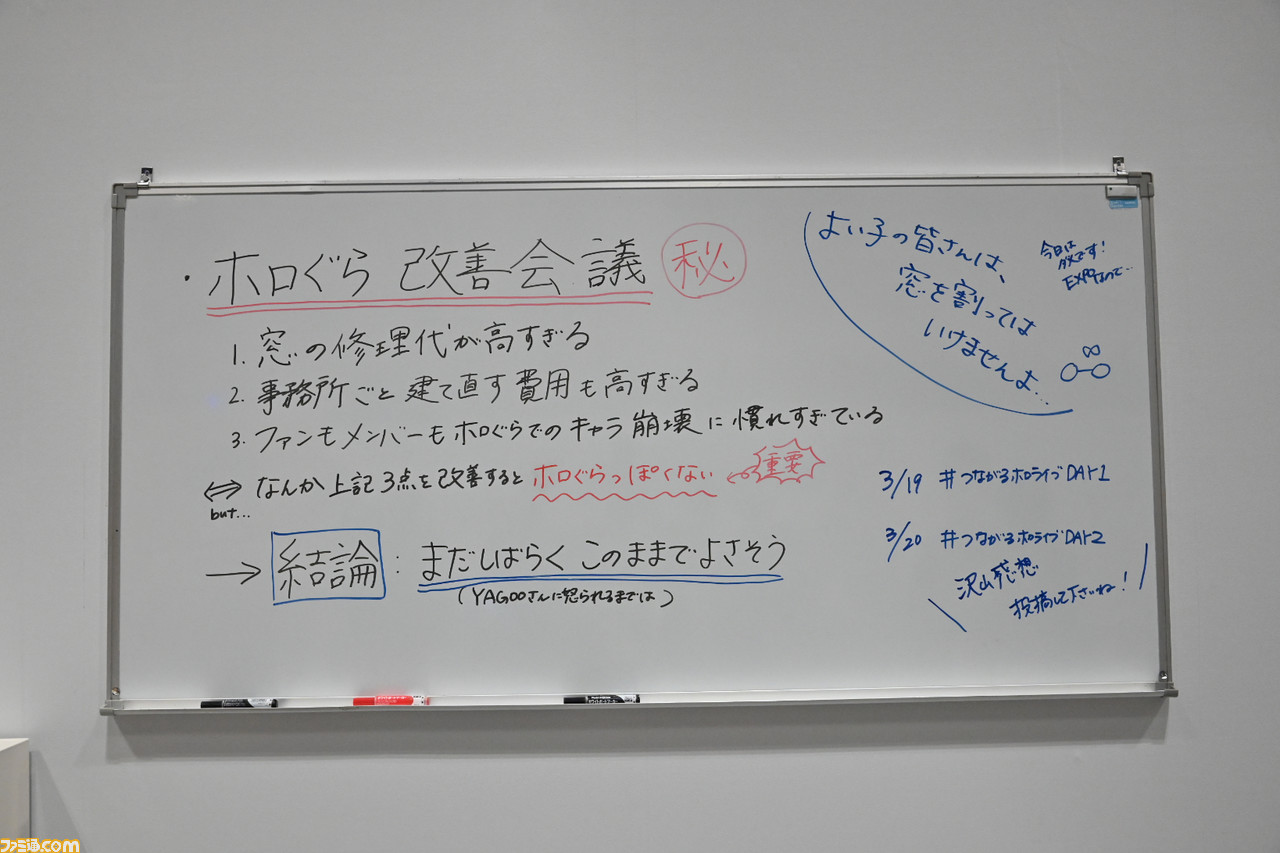 ・ホロぐら 改善会議 ㊙
1. 窓の修理代が高すぎる
2. 事務所ごと建て直す費用も高すぎる
3. ファンもメンバーもホロぐらでのキャラ崩壊に慣れすぎている
⇔ なんか上記3点を改善するとホロぐらっぽくない ← 重要
but...
→ 結論 : まだしばらくこのままでよさそう
(YAGOOさんに怒られるまでは)
よい子の皆さんは、
窓を割っては
いけませんよ...
今日は
ダメです!
EXPOなので...
3/19 #つながるホロライブDAY1
3/20 #つながるホロライブDAY2
沢山感想
投稿して下さいね!
ファミ通.com